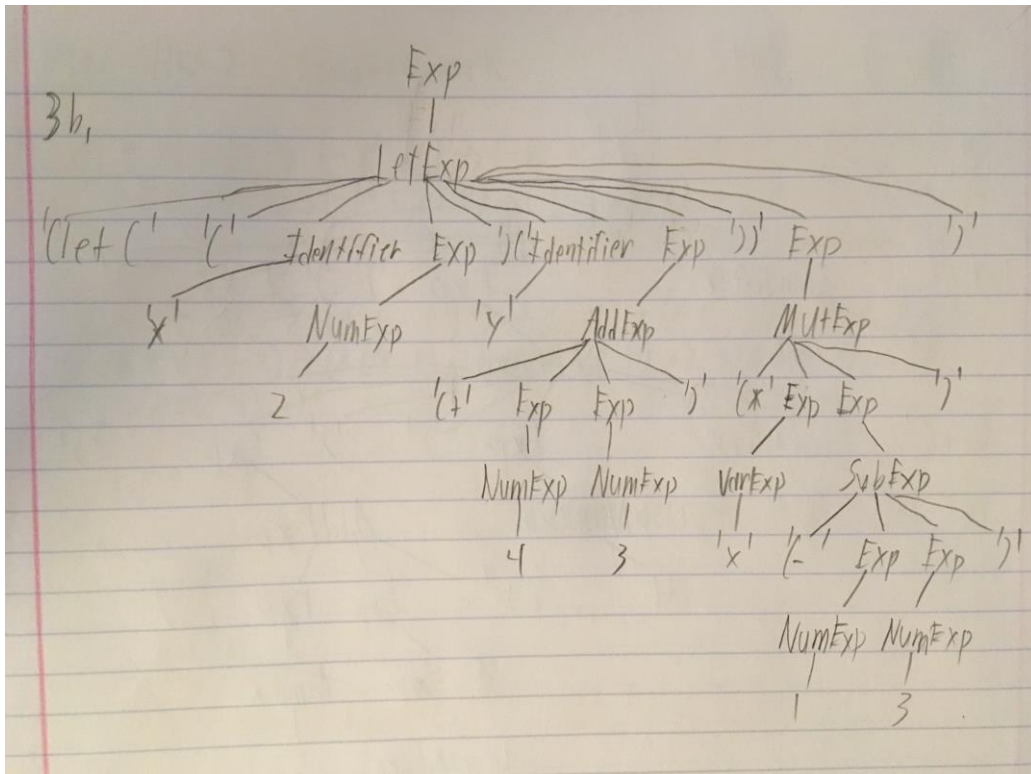 Exp
3b,
LetExp
'(let (' '(' Identifier Exp ')(' Identifier Exp '))' Exp ')'
'x' NumExp 'y' AddExp MultExp
2 '(+' Exp Exp ')' '(*' Exp Exp ')'
NumExp NumExp VarExp SubExp
4 3 'x' '(-' Exp Exp ')'
NumExp NumExp
1 3